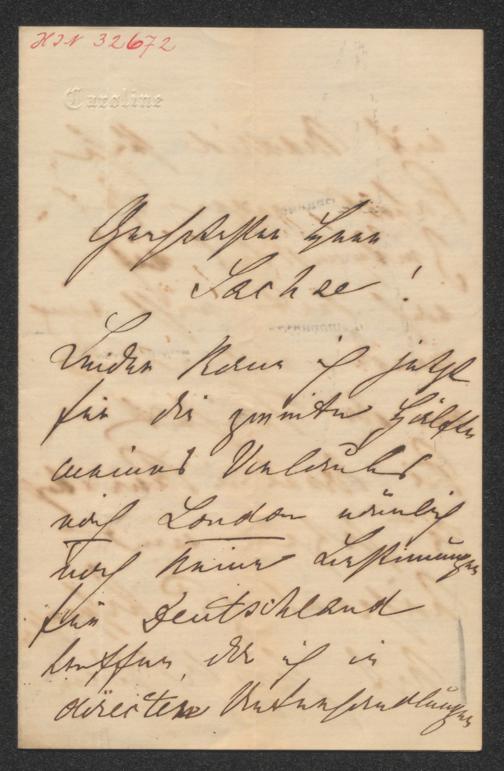 HIN 32672
Caroline
Geehrtester Herr
Sachse!
Leider kann ich jetzt
für die zweite Hälfte
meines Urlaubs
nach London nämlich
noch keine Bestimmungen
für Deutschland
treffen, da ich in
directen Unterhandlungen